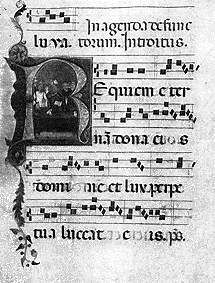 In agenda defunc
torum. Introitus.
Requiem eter
nā dona eis
domine et lux ꝑpe
tua luceat eis. ps.